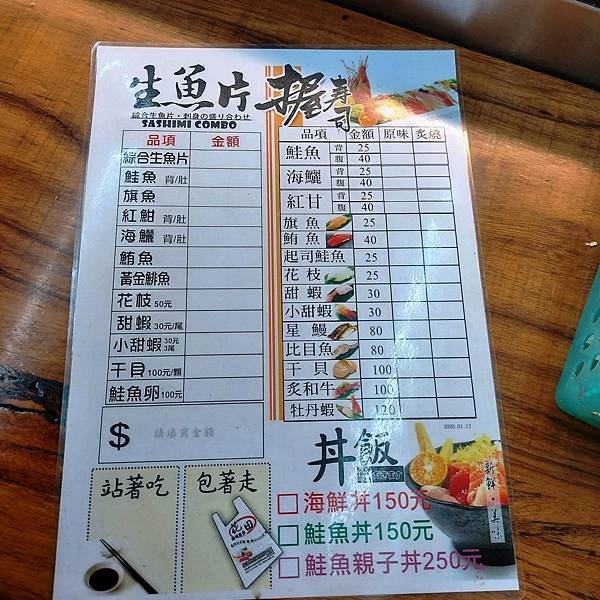 生魚片
綜合生魚片・刺身の盛り合わせ
SASHIMI COMBO
品項 金額
綜合生魚片
鮭魚 背/肚
旗魚
紅魽 背/肚
海鱺 背/肚
鮪魚
黃金鯡魚
花枝 50元
甜蝦 30元/尾
小甜蝦 30元 3尾
干貝 100元/顆
鮭魚卵 100元
$ 請填寫金額
站著吃
包著走
握壽司
品項 金額 原味 炙燒
鮭魚 背 25
腹 40
海鱺 背 25
腹 40
紅甘 背 25
腹 40
旗魚 25
鮪魚 40
起司鮭魚 25
花枝 25
甜蝦 30
小甜蝦 30
星鰻 80
比目魚 80
干貝 100
炙和牛 100
牡丹蝦 120
2020.01.13
丼飯
新鮮・美味
□海鮮丼150元
□鮭魚丼150元
□鮭魚親子丼250元